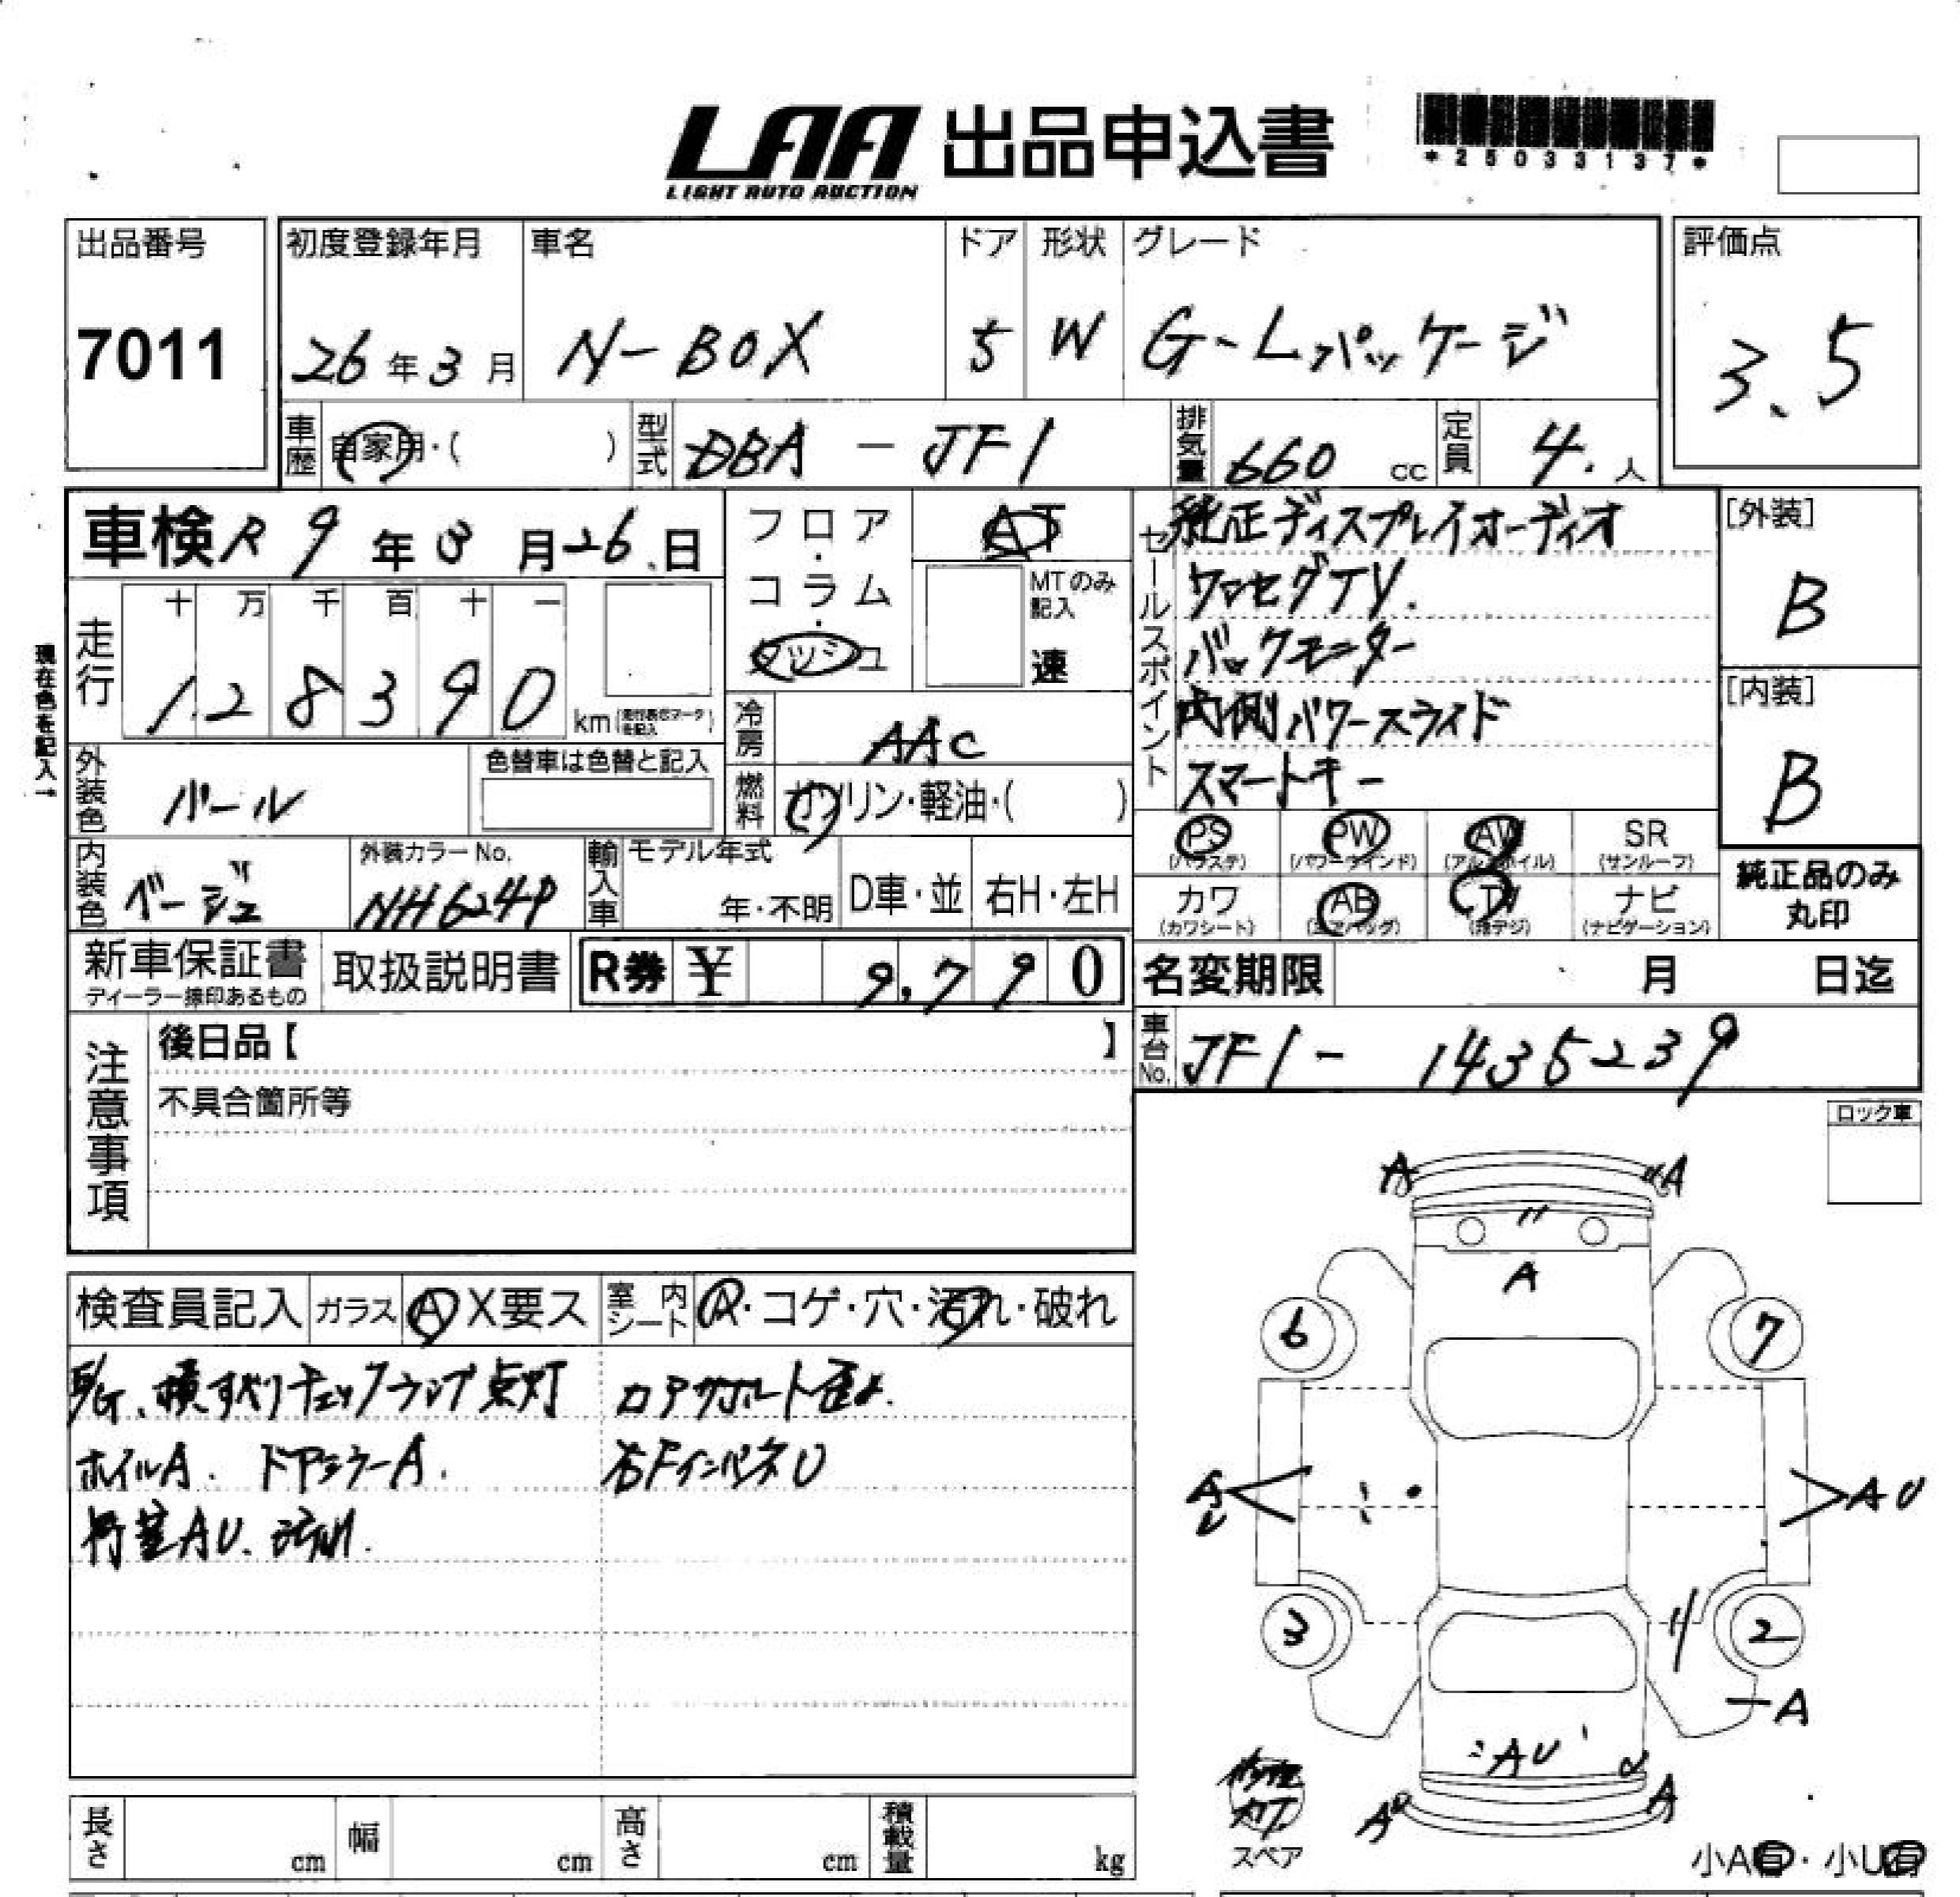 LAA 出品申込書
LIGHT AUTO AUCTION
*25033137*
出品番号
7011
初度登録年月
26年3月
車名
N-BOX
ドア
5
形状
W
グレード
G-Lパッケージ
評価点
3.5
車歴 自家用・( )
型式 DBA - JF1
排気量 660 cc
定員 4.人
車検 R 9年3月26日
フロア・コラム・ダッシュ
AT
MTのみ記入
速
セールスポイント
純正ディスプレイオーディオ
ワンセグTV.
バックモニター
両側パワースライド
スマートキー
[外装]
B
[内装]
B
現在色を記入→
走行
十 万 千 百 十 一
1 2 8 3 9 0 km
冷房 AAC
外装色 パール
色替車は色替と記入
燃料 ガソリン・軽油・( )
PS AW PW SR
(パワステ) (パワーウインド) (アルミホイル) (サンルーフ)
カワ AB TV ナビ
(カワシート) (エアバッグ) (地デジ) (ナビゲーション)
純正品のみ
丸印
内装色 ベージュ
外装カラーNo.
NH624P
輸入車
モデル年式
年・不明
D車・並
右H・左H
新車保証書
ディーラー捺印あるもの
取扱説明書
R券 ¥ 9,790
名変期限 月 日迄
車台No. JF1- 1435239
注意事項
後日品【 】
不具合箇所等
ロック車
検査員記入
ガラス A X要ス
室内シート A・コゲ・穴・汚れ・破れ
E/G、横すべりチェックランプ点灯
ホイルA. ドアミラーA.
荷室AU. 汚れ.
コアサポート歪み.
右FインパネU
A A
A
6 7
A U
AU
3 2
A
AU
A A
修理
スペア
小A有・小U有
長さ cm
幅 cm
高さ cm
積載量 kg